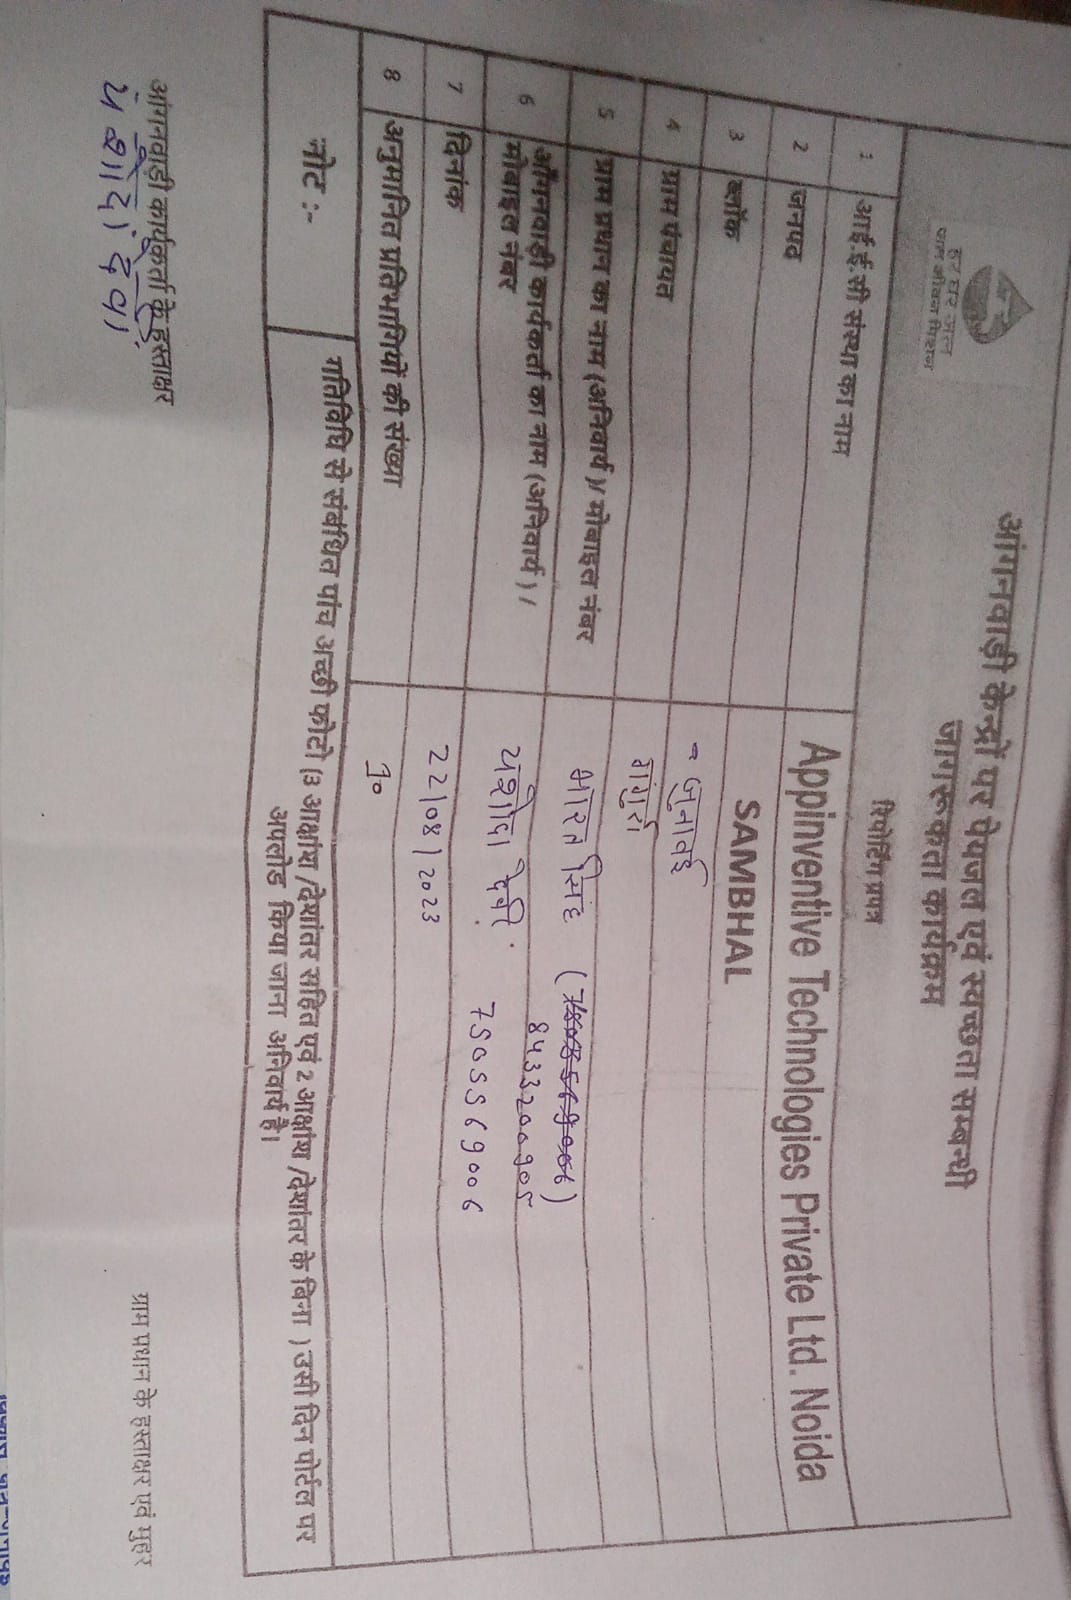 हर घर जल
जल जीवन मिशन
आंगनवाड़ी केन्द्रों पर पेयजल एवं स्वच्छता सम्बन्धी
जागरूकता कार्यक्रम
रिपोर्टिंग प्रपत्र
1 आई.ई.सी संस्था का नाम Appinventive Technologies Private Ltd. Noida
2 जनपद SAMBHAL
3 ब्लॉक - जुनावई
4 ग्राम पंचायत
5 ग्राम प्रधान का नाम (अनिवार्य)/ मोबाइल नंबर भारत सिंह
8433200905
6 आँगनवाड़ी कार्यकर्ता का नाम (अनिवार्य) /
मोबाइल नंबर
यशोदा देवी
7505569006
7 दिनांक 22/08/2023
8 अनुमानित प्रतिभागियों की संख्या
नोट :- गतिविधि से संबंधित पांच अच्छी फोटो (3 आक्षांश /देशांतर सहित एवं 2 आक्षांश /देशांतर के बिना ) उसी दिन पोर्टल पर
अपलोड किया जाना अनिवार्य है।
आंगनवाड़ी कार्यकर्ता के हस्ताक्षर
यशोदा देवी
ग्राम प्रधान के हस्ताक्षर एवं मुहर